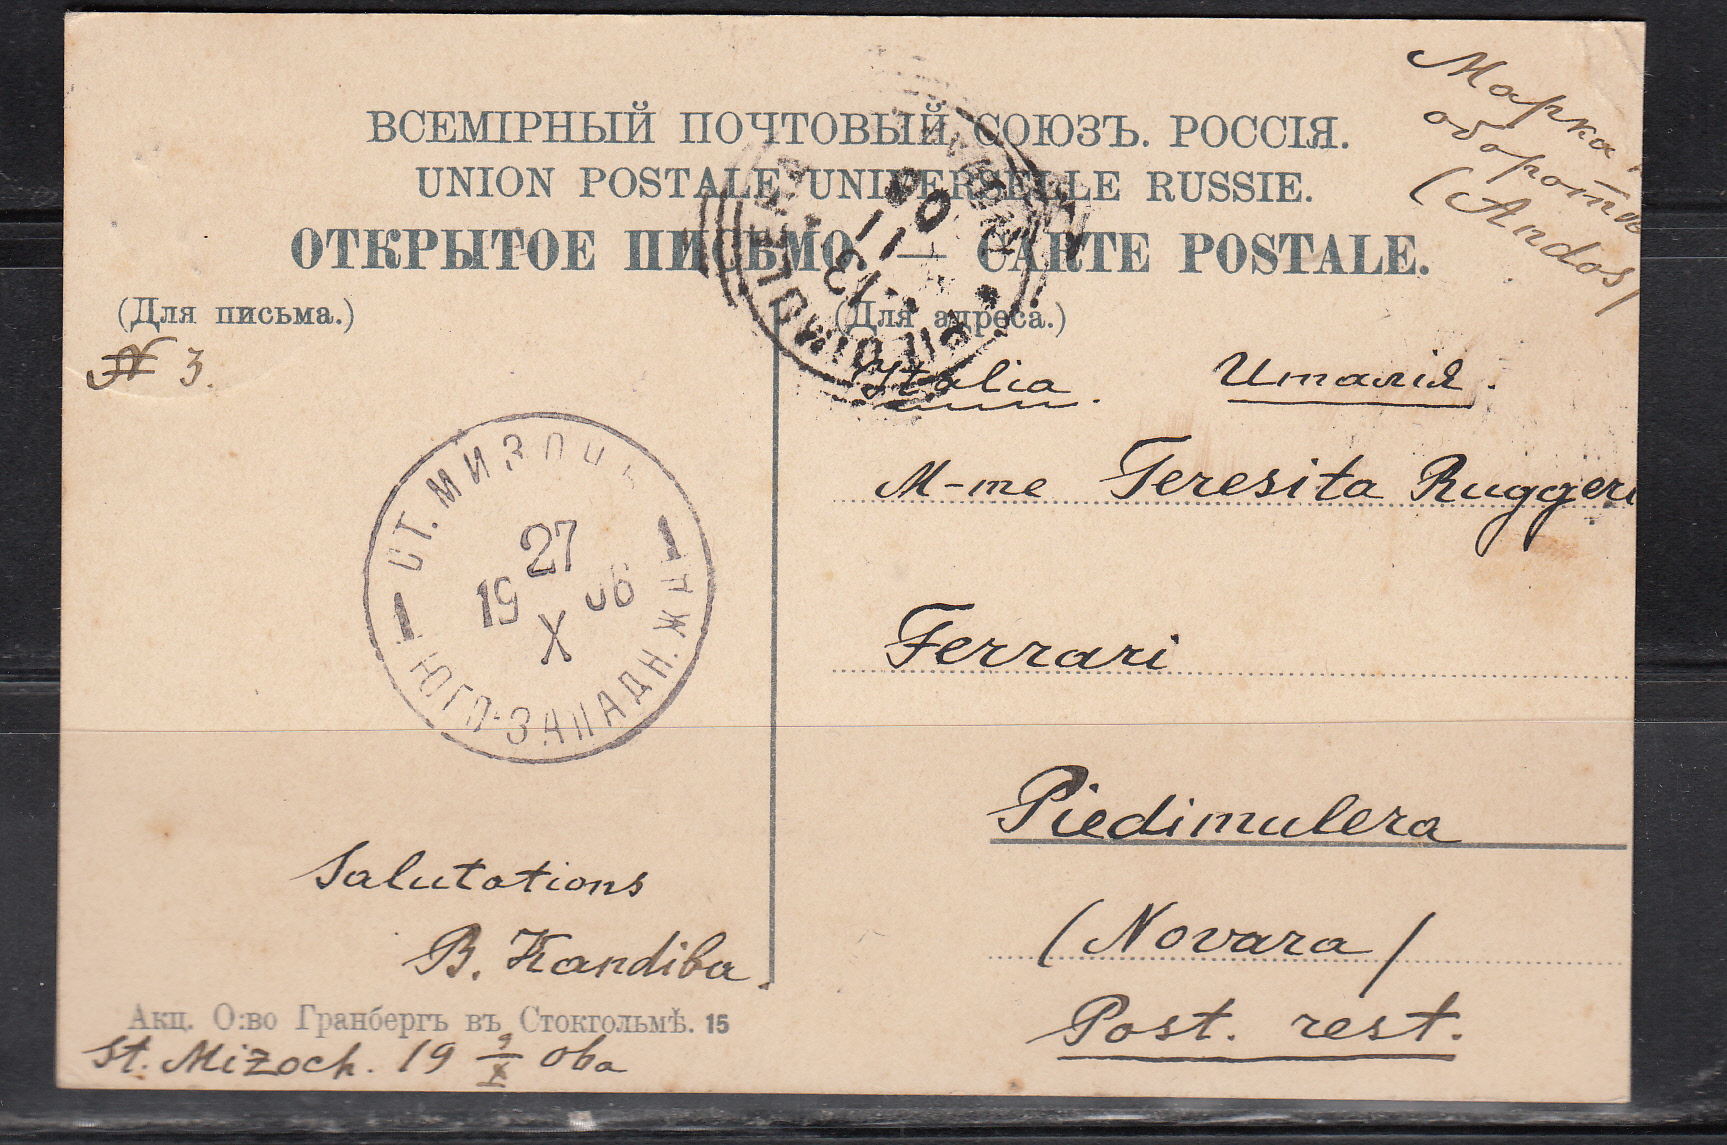 ВСЕМІРНЫЙ ПОЧТОВЫЙ СОЮЗЪ. РОССІЯ.
UNION POSTALE UNIVERSELLE RUSSIE.
ОТКРЫТОЕ ПИСЬМО — CARTE POSTALE.
Марка
оборотн
(Andos)
(Для письма.)
(Для адреса.)
№ 3.
Italia. Италія.
M-me Teresita Ruggeri
Ferrari
Piedimulera
(Novara)
Post. rest.
СТ. МИЗОЧЪ
27
19 06
X
ЮГО-ЗАПАДН. Ж.
13 11 06
Salutations
B. Kandiba.
Акц. О:во Гранбергъ въ Стокгольмѣ. 15
St. Mizoch. 19 9/X 06a